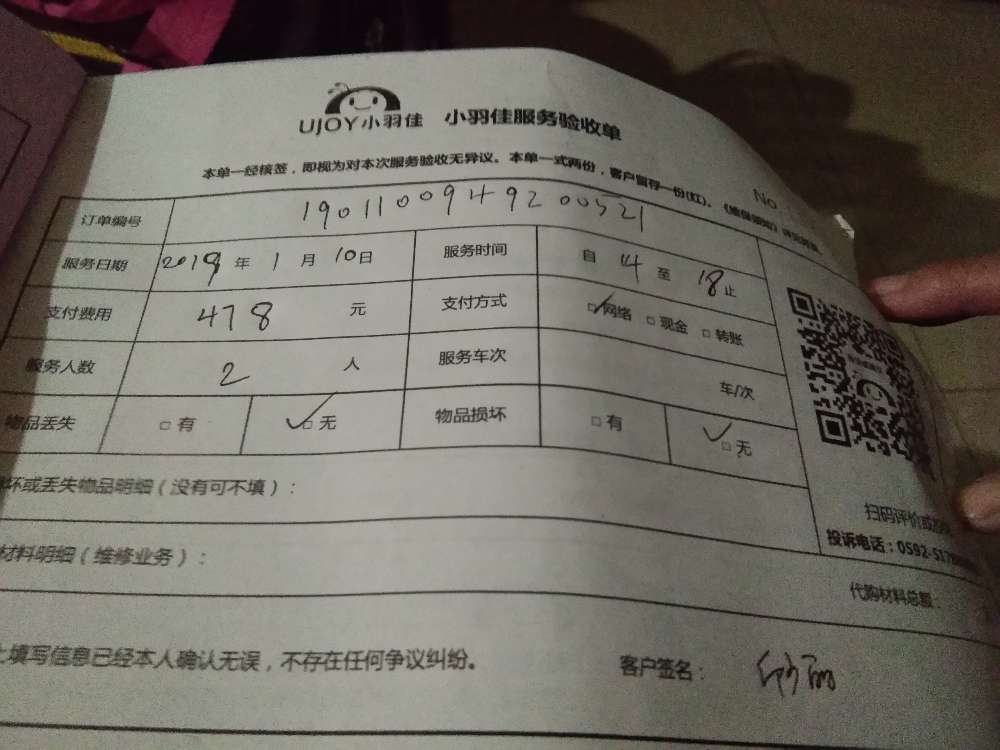 UJOY小羽佳 小羽佳服务验收单
本单一经核签，即视为对本次服务验收无异议。本单一式两份，客户留存一份(红)。
No
订单编号 1901100949200321
服务日期 2019年 1月 10日 服务时间 自 14 至 18 止
支付费用 478 元 支付方式 ☑网络 □现金 □转账
服务人数 2 人 服务车次 车/次
物品丢失 □有 ☑无 物品损坏 □有 ☑无
坏或丢失物品明细（没有可不填）：
扫码评价或
材料明细（维修业务）：
投诉电话：0592-517
代购材料总额：
上填写信息已经本人确认无误，不存在任何争议纠纷。 客户签名：